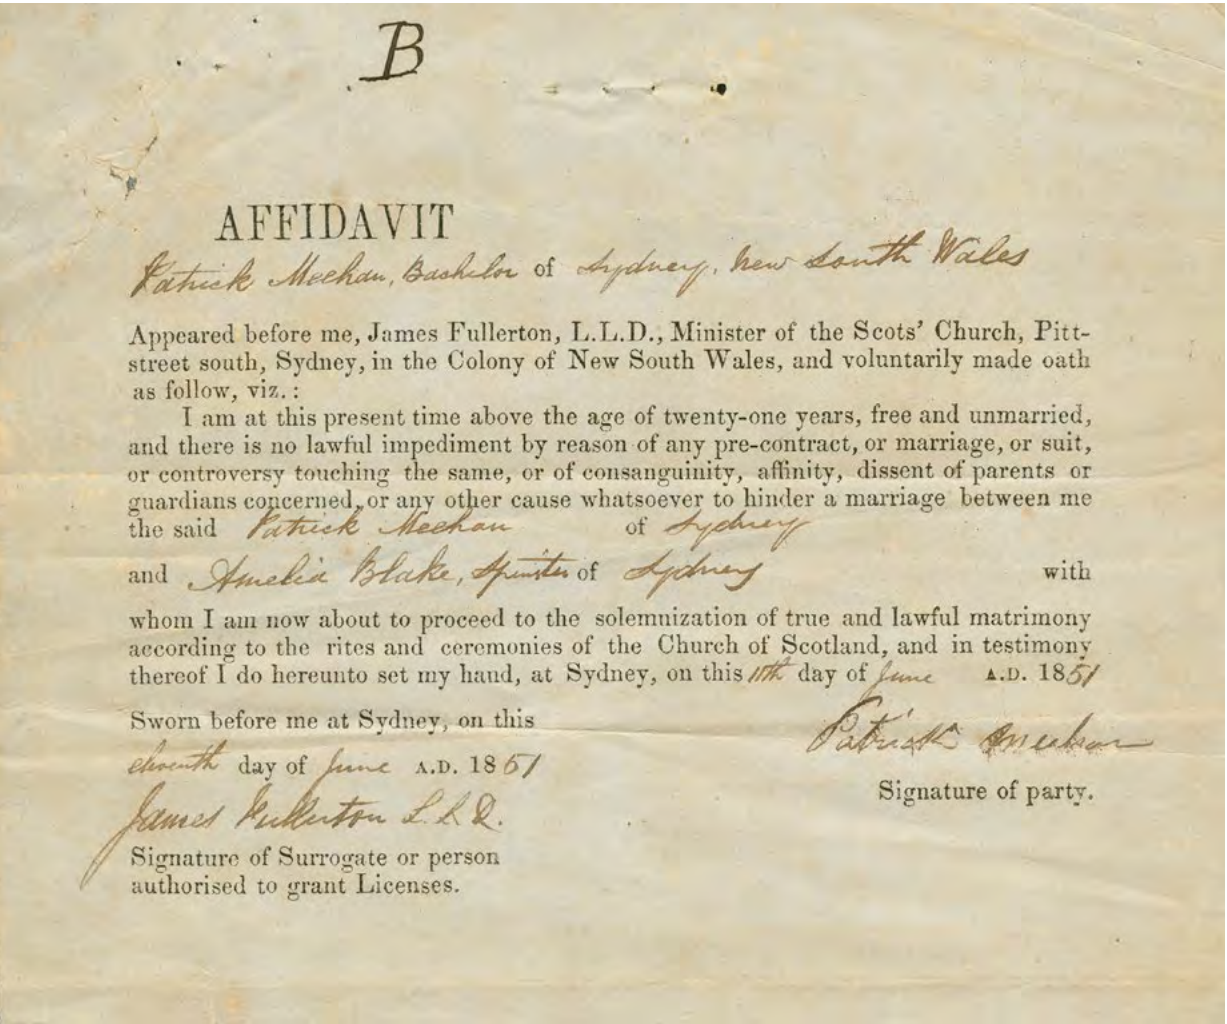 B
AFFIDAVIT
Patrick Meehan, Bachelor of Sydney, New South Wales
Appeared before me, James Fullerton, L.L.D., Minister of the Scots' Church, Pitt-
street south, Sydney, in the Colony of New South Wales, and voluntarily made oath
as follow, viz. :
I am at this present time above the age of twenty-one years, free and unmarried,
and there is no lawful impediment by reason of any pre-contract, or marriage, or suit,
or controversy touching the same, or of consanguinity, affinity, dissent of parents or
guardians concerned, or any other cause whatsoever to hinder a marriage between me
the said Patrick Meehan of Sydney
and Amelia Blake, Spinster of Sydney with
whom I am now about to proceed to the solemnization of true and lawful matrimony
according to the rites and ceremonies of the Church of Scotland, and in testimony
thereof I do hereunto set my hand, at Sydney, on this 11th day of June A.D. 1851
Sworn before me at Sydney, on this
eleventh day of June A.D. 1851
James Fullerton L.L.D.
Signature of Surrogate or person
authorised to grant Licenses.
Patrick Meehan
Signature of party.